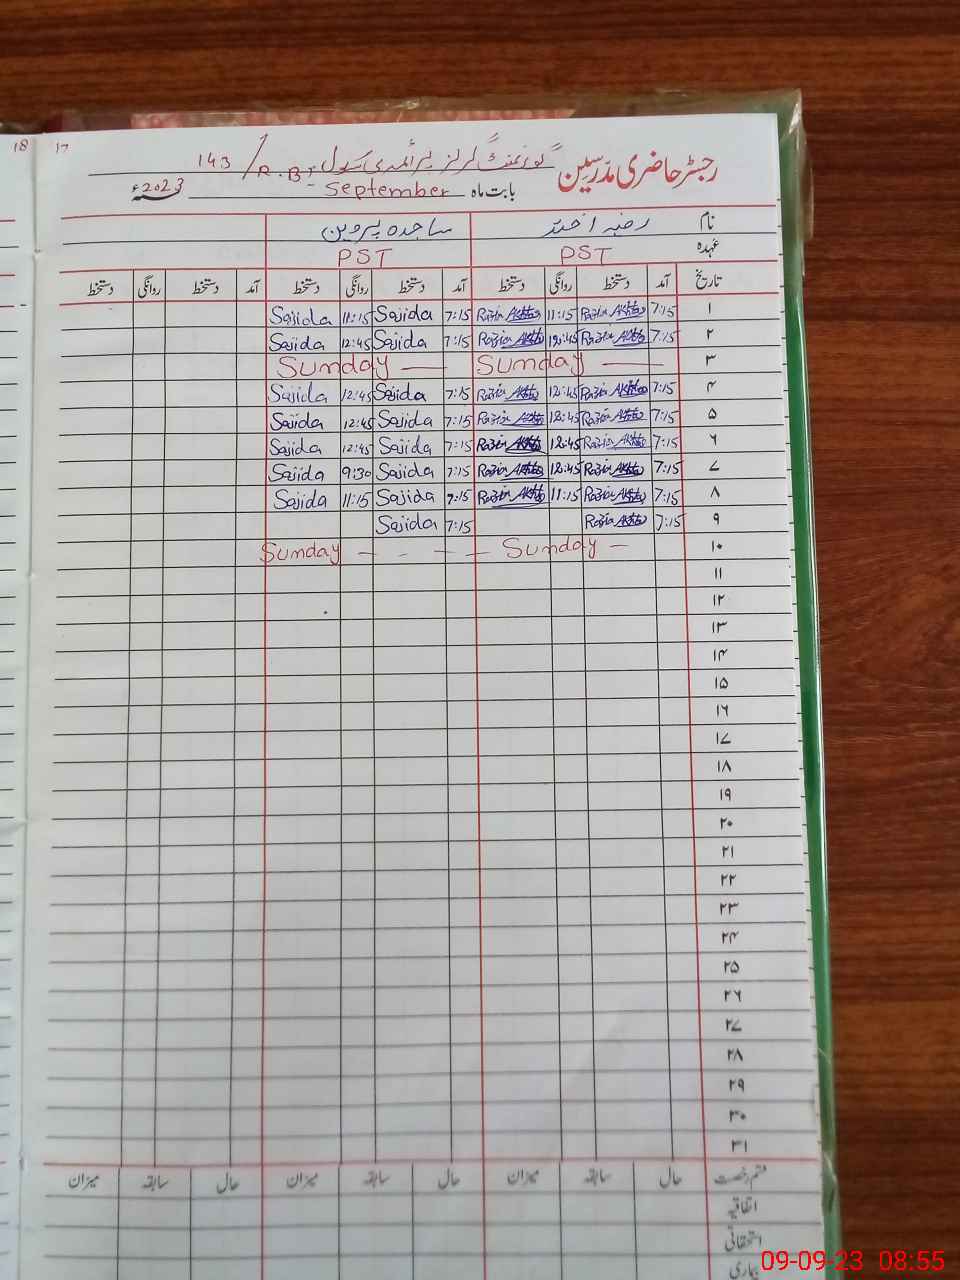 18 17
رجسٹر حاضری مدرسین گورنمنٹ گرلز پرائمری سکول 143/R.B
بابت ماہ September سنہ 2023ء
نام رضیہ اختر ساجدہ پروین
عہدہ PST PST
تاریخ آمد دستخط روانگی دستخط آمد دستخط روانگی دستخط آمد دستخط روانگی دستخط
۱ 7:15 Razia Akhtar 11:15 Razia Akhtar 7:15 Sajida 11:15 Sajida
۲ 7:15 Razia Akhtar 12:45 Razia Akhtar 7:15 Sajida 12:45 Sajida
۳ Sunday Sunday
۴ 7:15 Razia Akhtar 12:45 Razia Akhtar 7:15 Sajida 12:45 Sajida
۵ 7:15 Razia Akhtar 12:45 Razia Akhtar 7:15 Sajida 12:45 Sajida
۶ 7:15 Razia Akhtar 12:45 Razia Akhtar 7:15 Sajida 12:45 Sajida
۷ 7:15 Razia Akhtar 12:45 Razia Akhtar 7:15 Sajida 9:30 Sajida
۸ 7:15 Razia Akhtar 11:15 Razia Akhtar 7:15 Sajida 11:15 Sajida
۹ 7:15 Razia Akhtar 7:15 Sajida
۱۰ Sunday Sunday
۱۱
۱۲
۱۳
۱۴
۱۵
۱۶
۱۷
۱۸
۱۹
۲۰
۲۱
۲۲
۲۳
۲۴
۲۵
۲۶
۲۷
۲۸
۲۹
۳۰
۳۱
قسم رخصت حال سابقہ میزان حال سابقہ میزان حال سابقہ میزان
اتفاقیہ
استحقاقی
بیماری
09-09-23 08:55